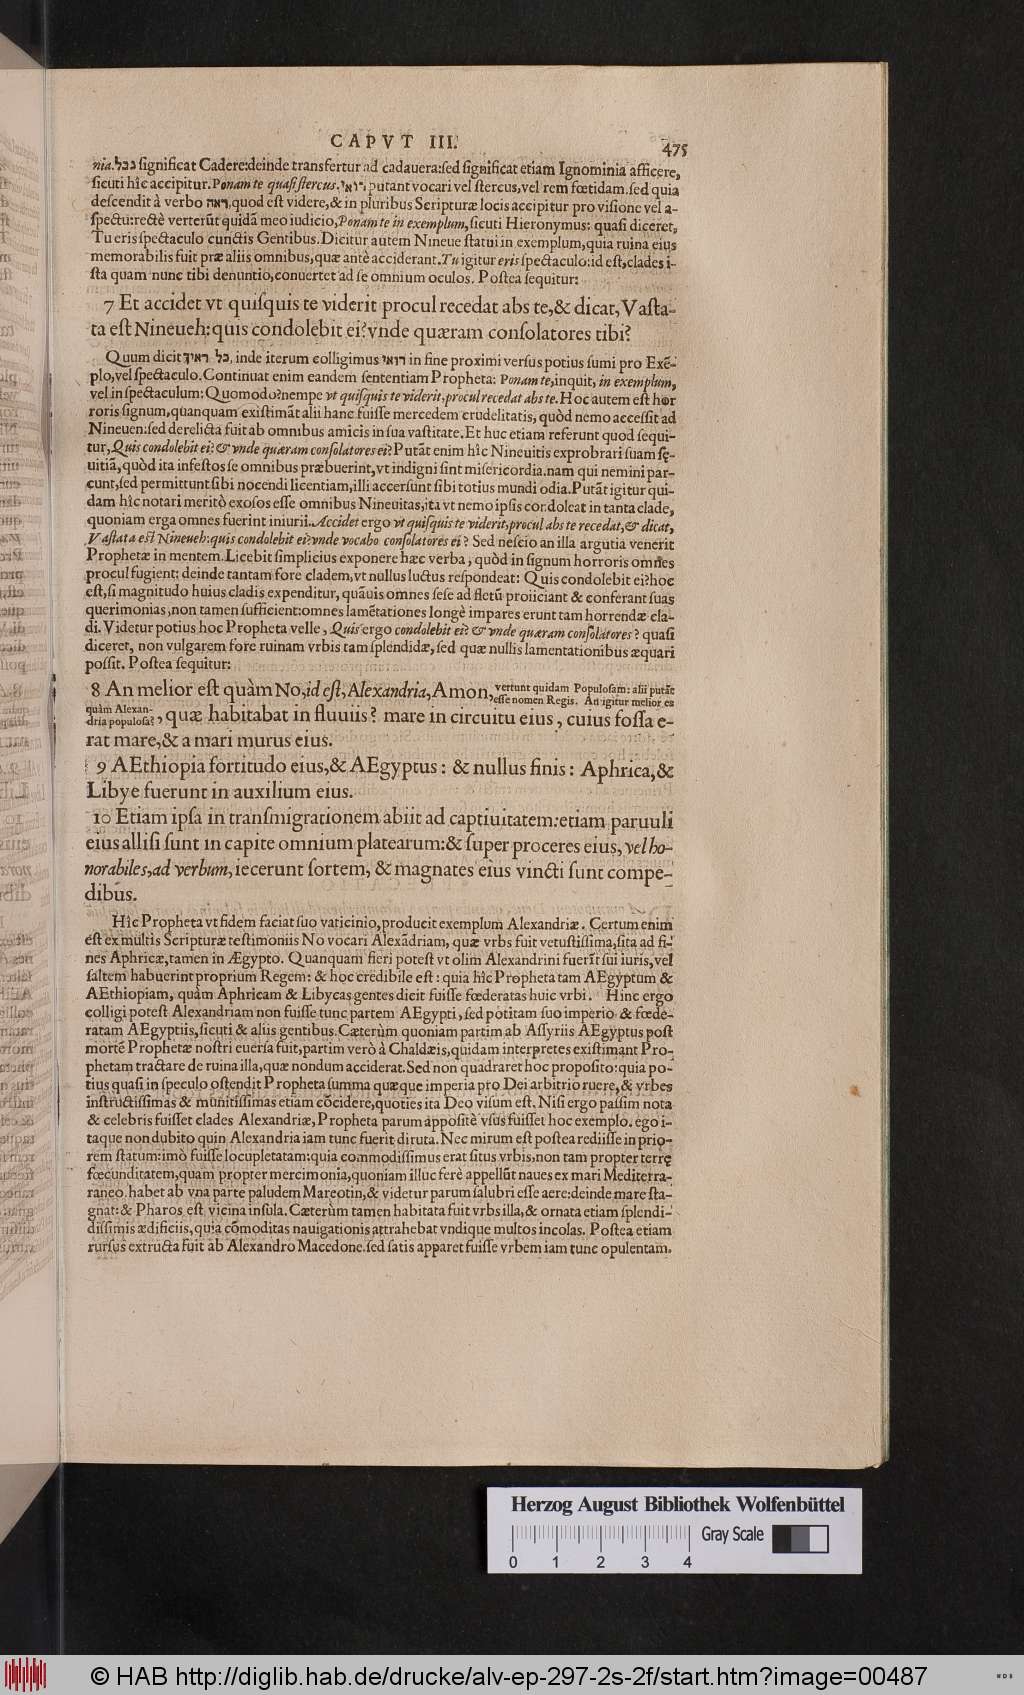 CAPVT III.
475
nia. נבל ſignificat Cadere:deinde transfertur ad cadauera:ſed ſignificat etiam Ignominia afficere,
ſicuti hîc accipitur. Ponam te quaſi ſtercus. רואי putant vocari vel ſtercus,vel rem fœtidam. ſed quia
deſcendit à verbo ראה, quod eſt videre,& in pluribus Scripturæ locis accipitur pro viſione vel a-
ſpectu:rectè verterũt quidã meo iudicio, Ponam te in exemplum, ſicuti Hieronymus: quaſi diceret,
Tu eris ſpectaculo cunctis Gentibus. Dicitur autem Nineue ſtatui in exemplum,quia ruina eius
memorabilis fuit præ aliis omnibus,quæ antè acciderant. Tu igitur eris ſpectaculo:id eſt,clades i-
ſta quam nunc tibi denuntio,conuertet ad ſe omnium oculos. Poſtea ſequitur:
7 Et accidet vt quiſquis te viderit procul recedat abs te,& dicat, Vaſta-
ta eſt Nineueh: quis condolebit ei? vnde quæram conſolatores tibi?
Quum dicit כל ראיך, inde iterum colligimus רואי in fine proximi verſus potius ſumi pro Exẽ-
plo,vel ſpectaculo. Continuat enim eandem ſententiam Propheta: Ponam te,inquit, in exemplum,
vel in ſpectaculum: Quomodo? nempe vt quiſquis te viderit, procul recedat abs te. Hoc autem eſt hor
roris ſignum,quanquam exiſtimãt alii hanc fuiſſe mercedem crudelitatis, quòd nemo acceſſit ad
Nineuen:ſed derelicta fuit ab omnibus amicis in ſua vaſtitate. Et huc etiam referunt quod ſequi-
tur, Quis condolebit ei? & vnde quæram conſolatores ei? Putãt enim hîc Nineuitis exprobrari ſuam ſę-
uitiã,quòd ita infeſtos ſe omnibus præbuerint,vt indigni ſint miſericordia. nam qui nemini par-
cunt,ſed permittunt ſibi nocendi licentiam,illi accerſunt ſibi totius mundi odia. Putãt igitur qui-
dam hîc notari meritò exoſos eſſe omnibus Nineuitas,ita vt nemo ipſis condoleat in tanta clade,
quoniam erga omnes fuerint iniurii. Accidet ergo vt quiſquis te viderit,procul abs te recedat,& dicat,
Vaſtata eſt Nineueh:quis condolebit ei? vnde vocabo conſolatores ei? Sed neſcio an illa argutia venerit
Prophetæ in mentem. Licebit ſimplicius exponere hæc verba, quòd in ſignum horroris omnes
procul fugient: deinde tantam fore cladem,vt nullus luctus reſpondeat: Quis condolebit ei? hoc
eſt,ſi magnitudo huius cladis expenditur, quãuis omnes ſeſe ad fletũ proiiciant & conferant ſuas
querimonias,non tamen ſufficient:omnes lamẽtationes longè impares erunt tam horrendæ cla-
di. Videtur potius hoc Propheta velle, Quis ergo condolebit ei? & vnde quæram conſolatores? quaſi
diceret, non vulgarem fore ruinam vrbis tam ſplendidæ, ſed quæ nullis lamentationibus æquari
poſſit. Poſtea ſequitur:
8 An melior eſt quàm No,id eſt, Alexandria, Amon, vertunt quidam Populoſam: alii putãt
eſſe nomen Regis. An igitur melior es
quàm Alexan-
dria populoſa?, quæ habitabat in fluuiis? mare in circuitu eius, cuius foſſa e-
rat mare,& a mari murus eius.
9 AEthiopia fortitudo eius,& AEgyptus: & nullus finis: Aphrica,&
Libye fuerunt in auxilium eius.
10 Etiam ipſa in tranſmigrationem abiit ad captiuitatem:etiam paruuli
eius alliſi ſunt in capite omnium platearum:& ſuper proceres eius, vel ho-
norabiles,ad verbum, iecerunt ſortem, & magnates eius vincti ſunt compe-
dibus.
Hîc Propheta vt fidem faciat ſuo vaticinio,producit exemplum Alexandriæ. Certum enim
eſt ex multis Scripturæ teſtimoniis No vocari Alexãdriam, quæ vrbs fuit vetuſtiſſima,ſita ad fi-
nes Aphricæ,tamen in Ægypto. Quanquam fieri poteſt vt olim Alexandrini fuerĩt ſui iuris,vel
ſaltem habuerint proprium Regem: & hoc credibile eſt: quia hîc Propheta tam AEgyptum &
AEthiopiam, quàm Aphricam & Libycas gentes dicit fuiſſe fœderatas huic vrbi. Hinc ergo
colligi poteſt Alexandriam non fuiſſe tunc partem AEgypti, ſed potitam ſuo imperio & fœde-
ratam AEgyptiis,ſicuti & aliis gentibus. Cæterùm quoniam partim ab Aſſyriis AEgyptus poſt
mortẽ Prophetæ noſtri euerſa fuit,partim verò à Chaldæis,quidam interpretes exiſtimant Pro-
phetam tractare de ruina illa,quæ nondum acciderat. Sed non quadraret hoc propoſito:quia po-
tius quaſi in ſpeculo oſtendit Propheta ſumma quæque imperia pro Dei arbitrio ruere,& vrbes
inſtructiſſimas & munitiſſimas etiam cõcidere,quoties ita Deo viſum eſt. Niſi ergo paſſim nota
& celebris fuiſſet clades Alexandriæ, Propheta parum appoſitè vſus fuiſſet hoc exemplo. ego i-
taque non dubito quin Alexandria iam tunc fuerit diruta. Nec mirum eſt poſtea rediiſſe in prio-
rem ſtatum:imò fuiſſe locupletatam:quia commodiſſimus erat ſitus vrbis,non tam propter terrę
fœcunditatem,quam propter mercimonia,quoniam illuc ferè appellũt naues ex mari Mediterra-
raneo. habet ab vna parte paludem Mareotin,& videtur parum ſalubri eſſe aere:deinde mare ſta-
gnat:& Pharos eſt vicina inſula. Cæterùm tamen habitata fuit vrbs illa,& ornata etiam ſplendi-
diſſimis ædificiis,quia cõmoditas nauigationis attrahebat vndique multos incolas. Poſtea etiam
rurſus extructa fuit ab Alexandro Macedone. ſed ſatis apparet fuiſſe vrbem iam tunc opulentam.
Herzog August Bibliothek Wolfenbüttel
Gray Scale
0 1 2 3 4
© HAB http://diglib.hab.de/drucke/alv-ep-297-2s-2f/start.htm?image=00487